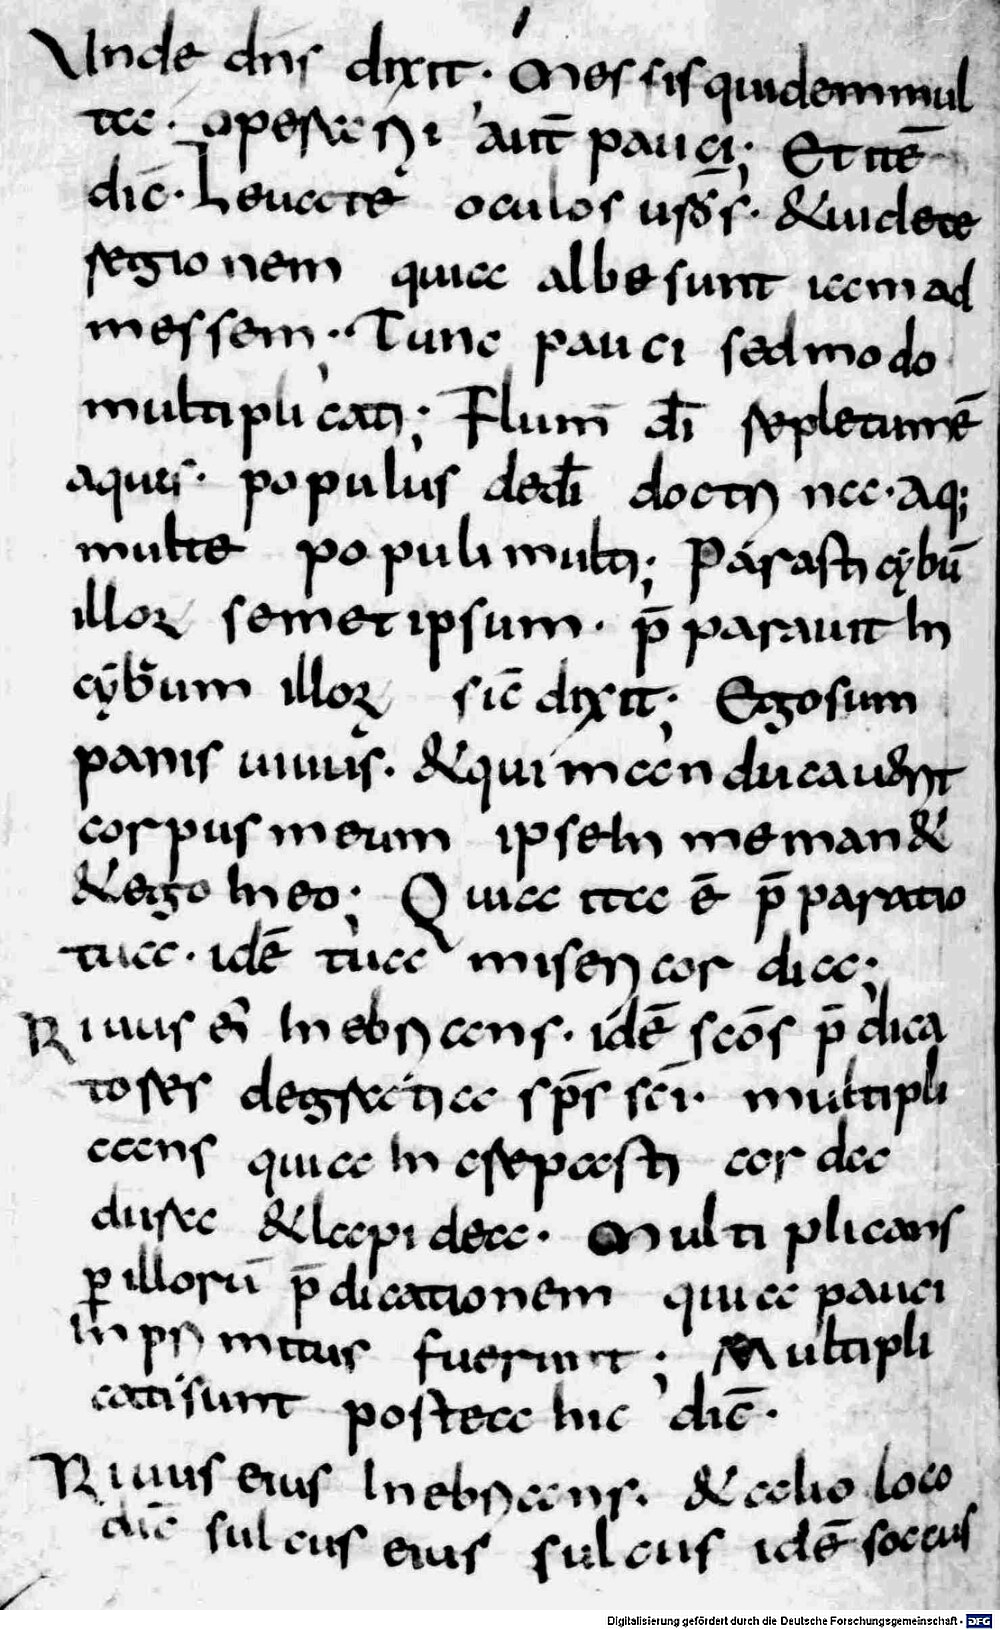 Unde dns̄ dixit· Messis quidem mul
ta· operarii aut̄ pauci; Et itē
dic̄· Leuate oculos ur̄os· &uidete
regionem quia albe sunt iam ad
messem· Tunc pauci sed modo
multiplicati; Flum̄ dī repletum ē
aquis· populus de dī doctri na· Aq;
multe populi multi; Parasti cybū
illoꝝ semet ipsum· p̄parauit in
cybum illoꝝ sic̄ dixit; Ego sum
panis uiuus· &qui manducauerit
corpus meum ipse in me man&
&ego in eo; Quia ita ē p̄paratio
tua· idē tua misericordia;
Riuus ei' inebrians· idē scōs p̄dica
tores de gratia sp̄s sc̄i· multipli
cans quia in erepasti corda
dura &lapidea· Multiplicans
ꝑ illorū p̄dicationem quia pauci
in primitus fuerunt; Multipli
cati sunt postea hic dic̄·
Riuus eius inebrians· &alio loco
dic̄ sulcus eius sulcus idē soccus
Digitalisierung gefördert durch die Deutsche Forschungsgemeinschaft - DFG